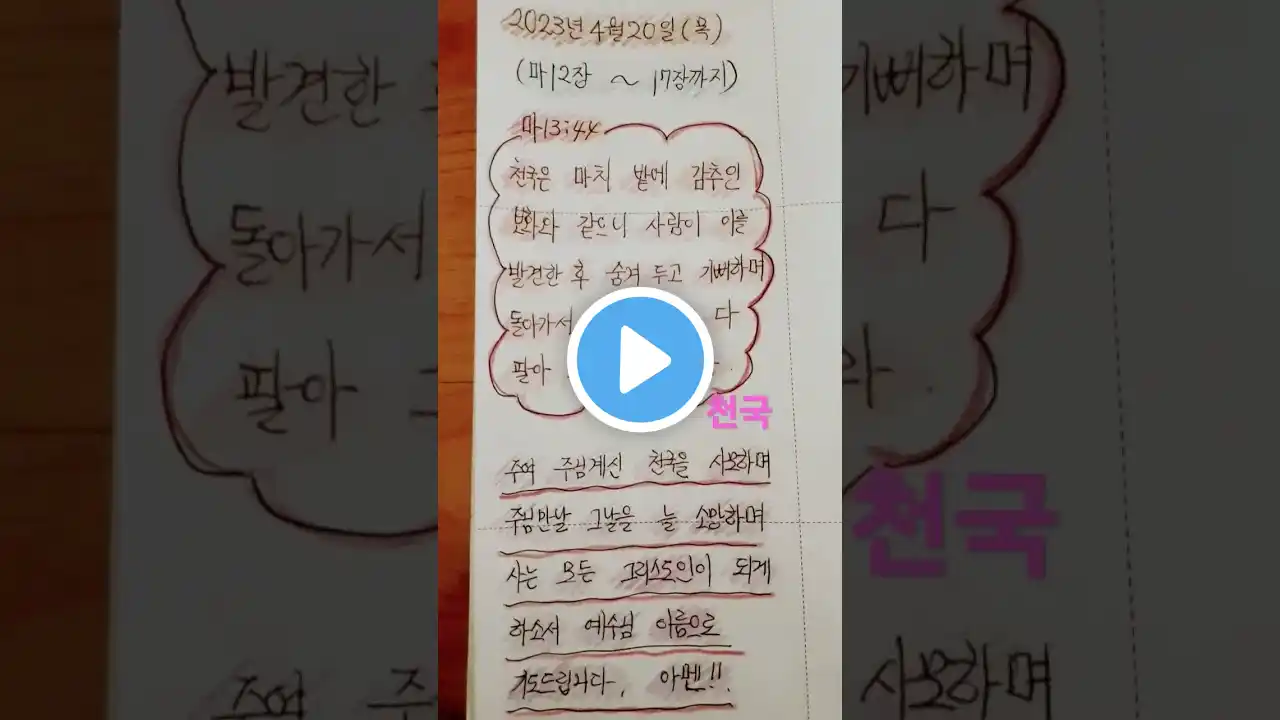 2023년 4월 20일 (목)
(마12장 ~ 17장까지)
마13:44
천국은 마치 밭에 감추인
보화와 같으니 사람이 이를
발견한 후 숨겨 두고 기뻐하며
돌아가서 다
팔아
천국
주여 주님계신 천국을 사모하며
주님만날 그날을 늘 소망하며
사는 모든 그리스도인이 되게
하소서 예수님 이름으로
기도드립니다, 아멘!!.